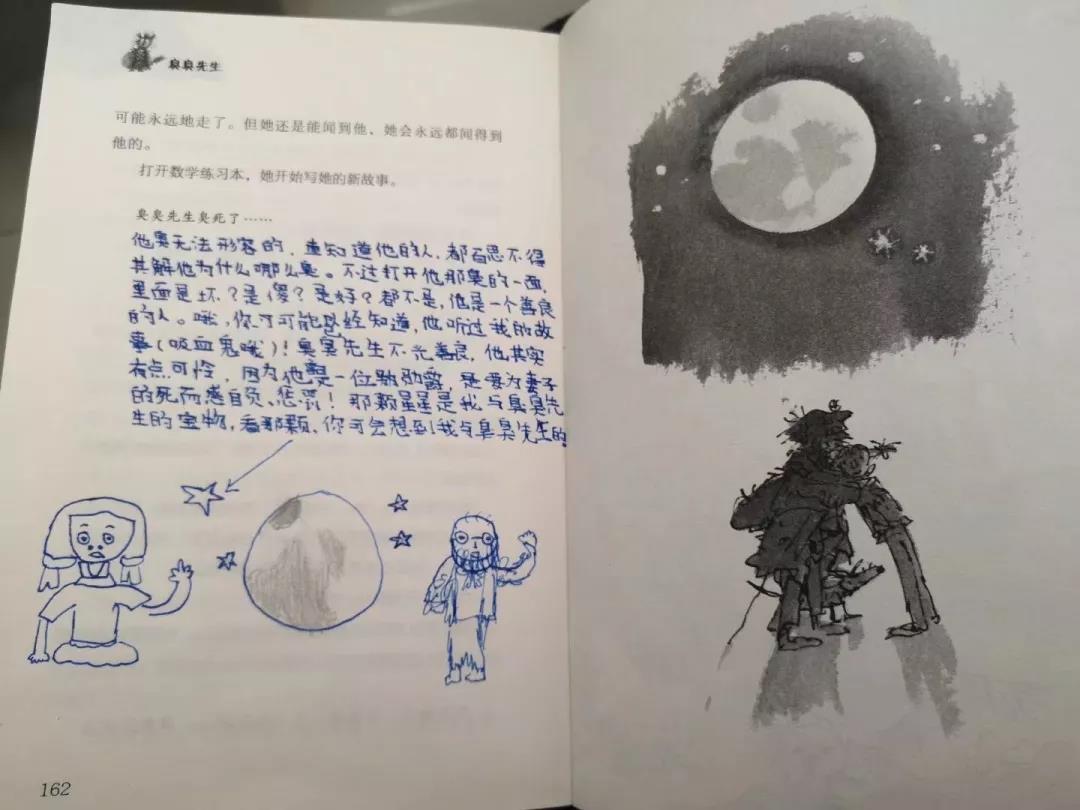 臭臭先生
可能永远地走了。但她还是能闻到他，她会永远都闻得到
他的。
打开数学练习本，她开始写她的新故事。
臭臭先生臭死了……
他臭无法形容的，重知道他的人，都百思不得
其解他为什么哪么臭。不过打开他那臭的一面，
里面是坏？是傻？是好？都不是，他是一个善良
的人。哦，你可能已经知道，他听过我的故
事（吸血鬼哦）！臭臭先生不光善良，他其实
有点可怜，因为他是一位勋爵，是要为妻子
的死而感自负、惩罚！那颗星星是我与臭臭先
生的宝物，看那颗、你可会想到我与臭臭先生的
162